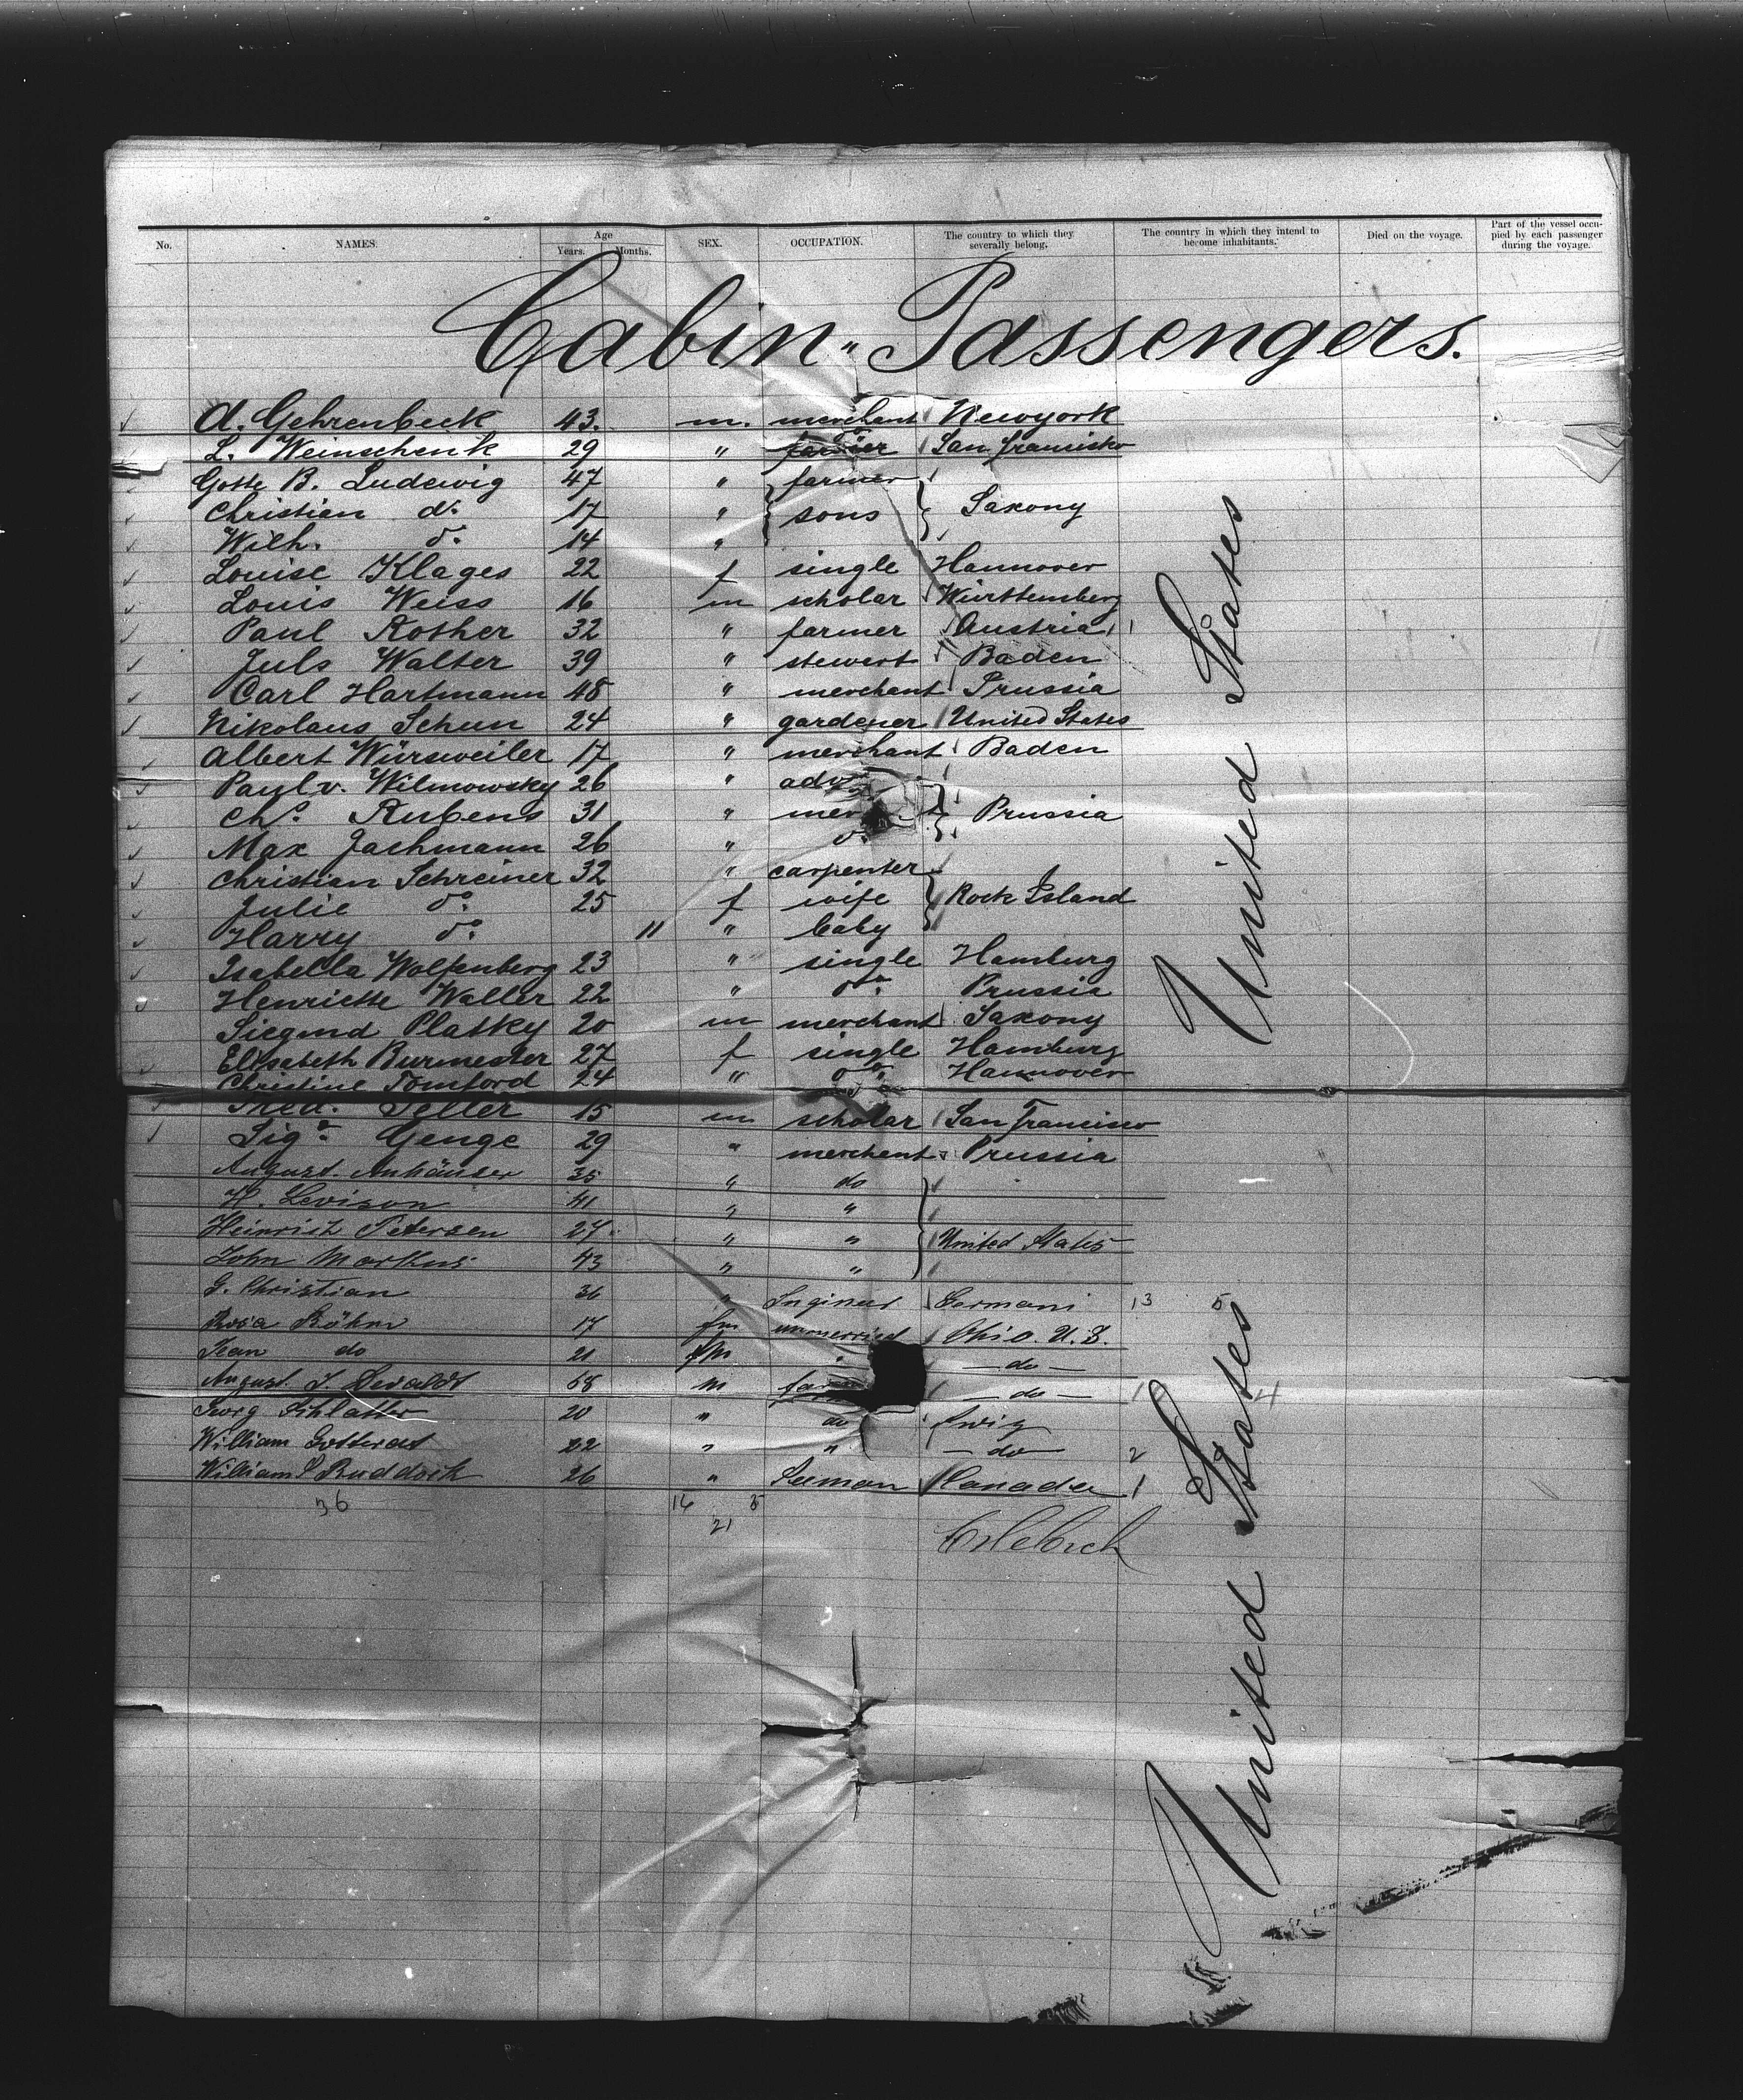 No. NAMES. Age Years. Months. SEX. OCCUPATION. The country to which they severally belong. The country in which they intend to become inhabitants. Died on the voyage. Part of the vessel occupied by each passenger during the voyage.
Cabin " Passengers.
A. Gehrenbeck 43. m. merchant Newyork
L. Weinschenk 29 " San Francisko
Gotte B. Ludewig 47 " farmer
Christian do. 17 " sons Saxony
Wilh. do. 14 "
Louise Klages 22 f single Hannover
Louis Weiss 16 m scholar Württemberg
Paul Rother 32 " farmer Austria
Juls Walter 39 " stewert Baden
Carl Hartmann 48 " merchant Prussia
Nikolaus Schun 24 " gardener United States
Albert Würsweiler 17 " merchant Baden
Paul v. Wilmowsky 26 " adv
Chs. Rubens 31 " mer Prussia
Max Jachmann 26 " do.
Christian Schreiner 32 " carpenter
Julie do. 25 f wife Rock Island
Harry do. 11 " baby
Isabella Wolfenberg 23 " single Hamburg
Henriette Waller 22 " do. Prussia
Siegmd Platky 20 m merchant Saxony
Elisabeth Burmester 27 f single Hamburg
Christine Tomford 24 " do. Hannover
Fred. Seller 15 m scholar San Francisco
Sigd. Genge 29 " merchent Prussia
August. Anhäuser 35 " do
H. Levison 41 " "
Heinrich Petersen 27. " " United States
John Markus 43 " "
G. Christian 36 " Ingineur Germani 13 5
Rosa Böhm 17 fm unmerried Ohio. U.S.
Jean do 21 fm — do —
August 68 m — do — 1 4
Georg Schlatter 20 " do
William 22 " " — do — 2
William S Ruddock 26 " Seeman Canada 1
36 16 5
21
United States
United States